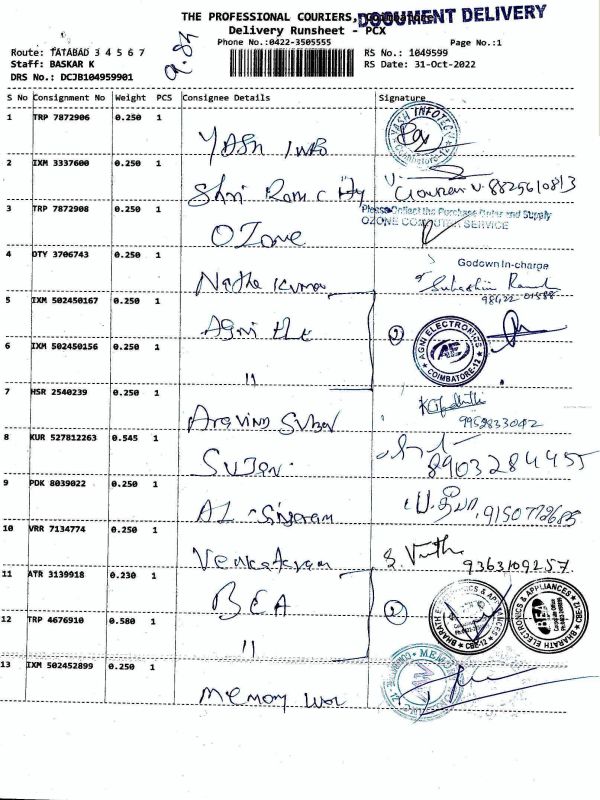 DOCUMENT DELIVERY
THE PROFESSIONAL COURIERS, Coimbatore
Delivery Runsheet - PCX
Phone No.:0422-3505555 Page No.:1
Route: TATABAD 3 4 5 6 7 RS No.: 1049599
Staff: BASKAR K RS Date: 31-Oct-2022
DRS No.: DCJB104959901
S No Consignment No Weight PCS Consignee Details Signature
1 TRP 7872906 0.250 1 YASH INFO YASH INFOTECH Coimbatore
2 IXM 3337600 0.250 1 Shri Ram C 8825610813
3 TRP 7872908 0.250 1 OZone
Please Collect the Purchase Order and Supply
OZONE COMPUTER SERVICE
4 DTY 3706743 0.250 1 Natha Kumar
Godown In-charge
5 IXM 502450167 0.250 1 Agni AGNI ELECTRONICS COIMBATORE-12
6 IXM 502450156 0.250 1 11
7 HSR 2540239 0.250 1 Aravind 9952833042
8 KUR 527812263 0.545 1 Sujan 8903284455
9 PDK 8039022 0.250 1 AL
10 VRR 7134774 0.250 1 9363109257
11 ATR 3139918 0.230 1 BEA BHARATH ELECTRONICS & APPLIANCES CBE-12 BHARATH ELECTRONICS & APPLIANCES CBE-12
12 TRP 4676910 0.580 1 11
13 IXM 502452899 0.250 1 Memory